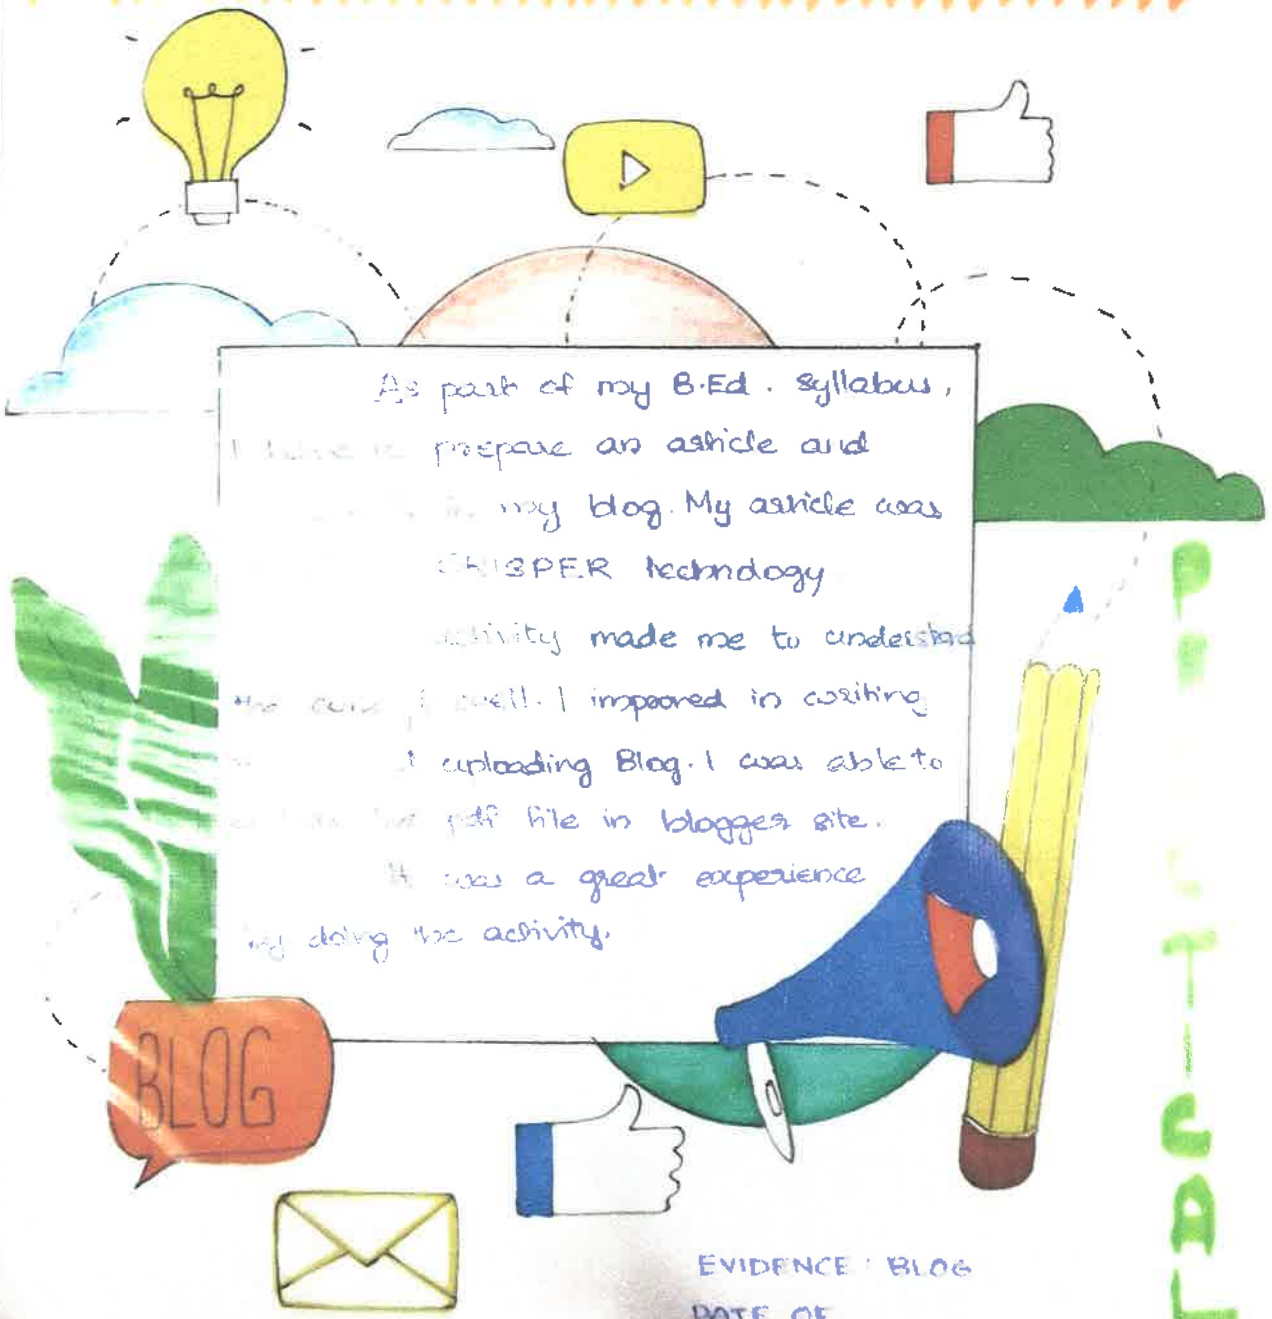 As part of my B.Ed. syllabus,
I have to prepare an article and
in my blog. My article was
CRISPER technology
activity made me to understand
the well. I improved in writing
uploading Blog. I was able to
pdf file in blogger site.
It was a great experience
by doing the activity.
BLOG
EVIDENCE : BLOG
DATE OF